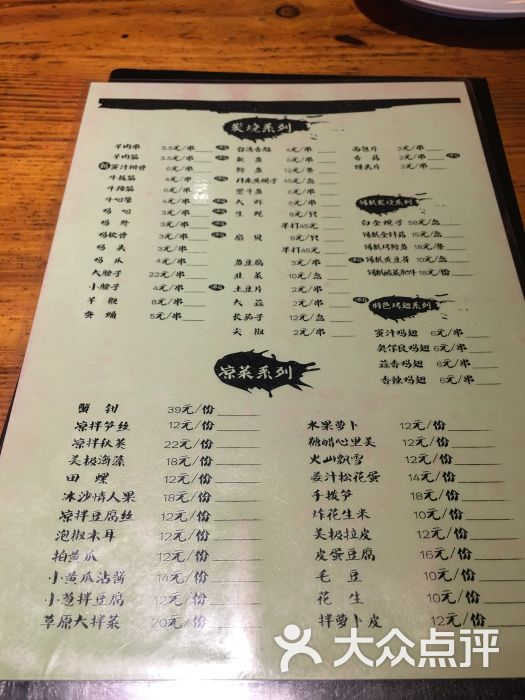 炭烧系列
羊肉串 3.5元/串
羊肉筋 3.5元/串
蜜汁排骨 6元/串
牛板筋 4元/串
牛蹄筋 6元/串
牛心管 4元/串
鸡心 3元/串
鸡胗 3元/串
鸡软骨 3元/串
鸡头 3元/串
鸡爪 4元/串
大腰子 22元/串
小腰子 4元/串
羊鞭 8元/串
蚕蛹 5元/串
台湾香肠 4元/串
鱿鱼 6元/串
鲶鱼 12元/条
45元/盘
6元/串
大虾 6元/串
生蚝 8元/只
半打45元
扇贝 8元/只
半打45元
鱼豆腐 3元/串
韭菜 10元/盘
土豆片 2元/串
大蒜 2元/串
长茄子 12元/盘
尖椒 2元/串
面包片 2元/串
香菇 2元/串
馒头片 2元/串
锡纸炭烧系列
白金蚬子 58元/盘
锡纸金针菇 15元/份
锡纸烤鲶鱼 18元/条
锡纸黄豆芽 10元/份
锡纸酸菜肥牛 18元/份
特色烤翅系列
蜜汁鸡翅 6元/串
奥尔良鸡翅 6元/串
蒜香鸡翅 6元/串
香辣鸡翅 6元/串
凉菜系列
蟹钳 39元/份
凉拌笋丝 12元/份
凉拌秋葵 22元/份
美极海藻 18元/份
田螺 12元/份
冰沙情人果 18元/份
凉拌豆腐丝 12元/份
泡椒木耳 12元/份
拍黄瓜 12元/份
小黄瓜沾酱 14元/份
小葱拌豆腐 12元/份
草原大拌菜 20元/份
水果萝卜 12元/份
糖醋心里美 12元/份
火山飘雪 12元/份
姜汁松花蛋 14元/份
手拨笋 18元/份
炸花生米 10元/份
美极拉皮 12元/份
皮蛋豆腐 16元/份
毛豆 10元/份
花生 10元/份
拌萝卜皮 12元/份
大众点评